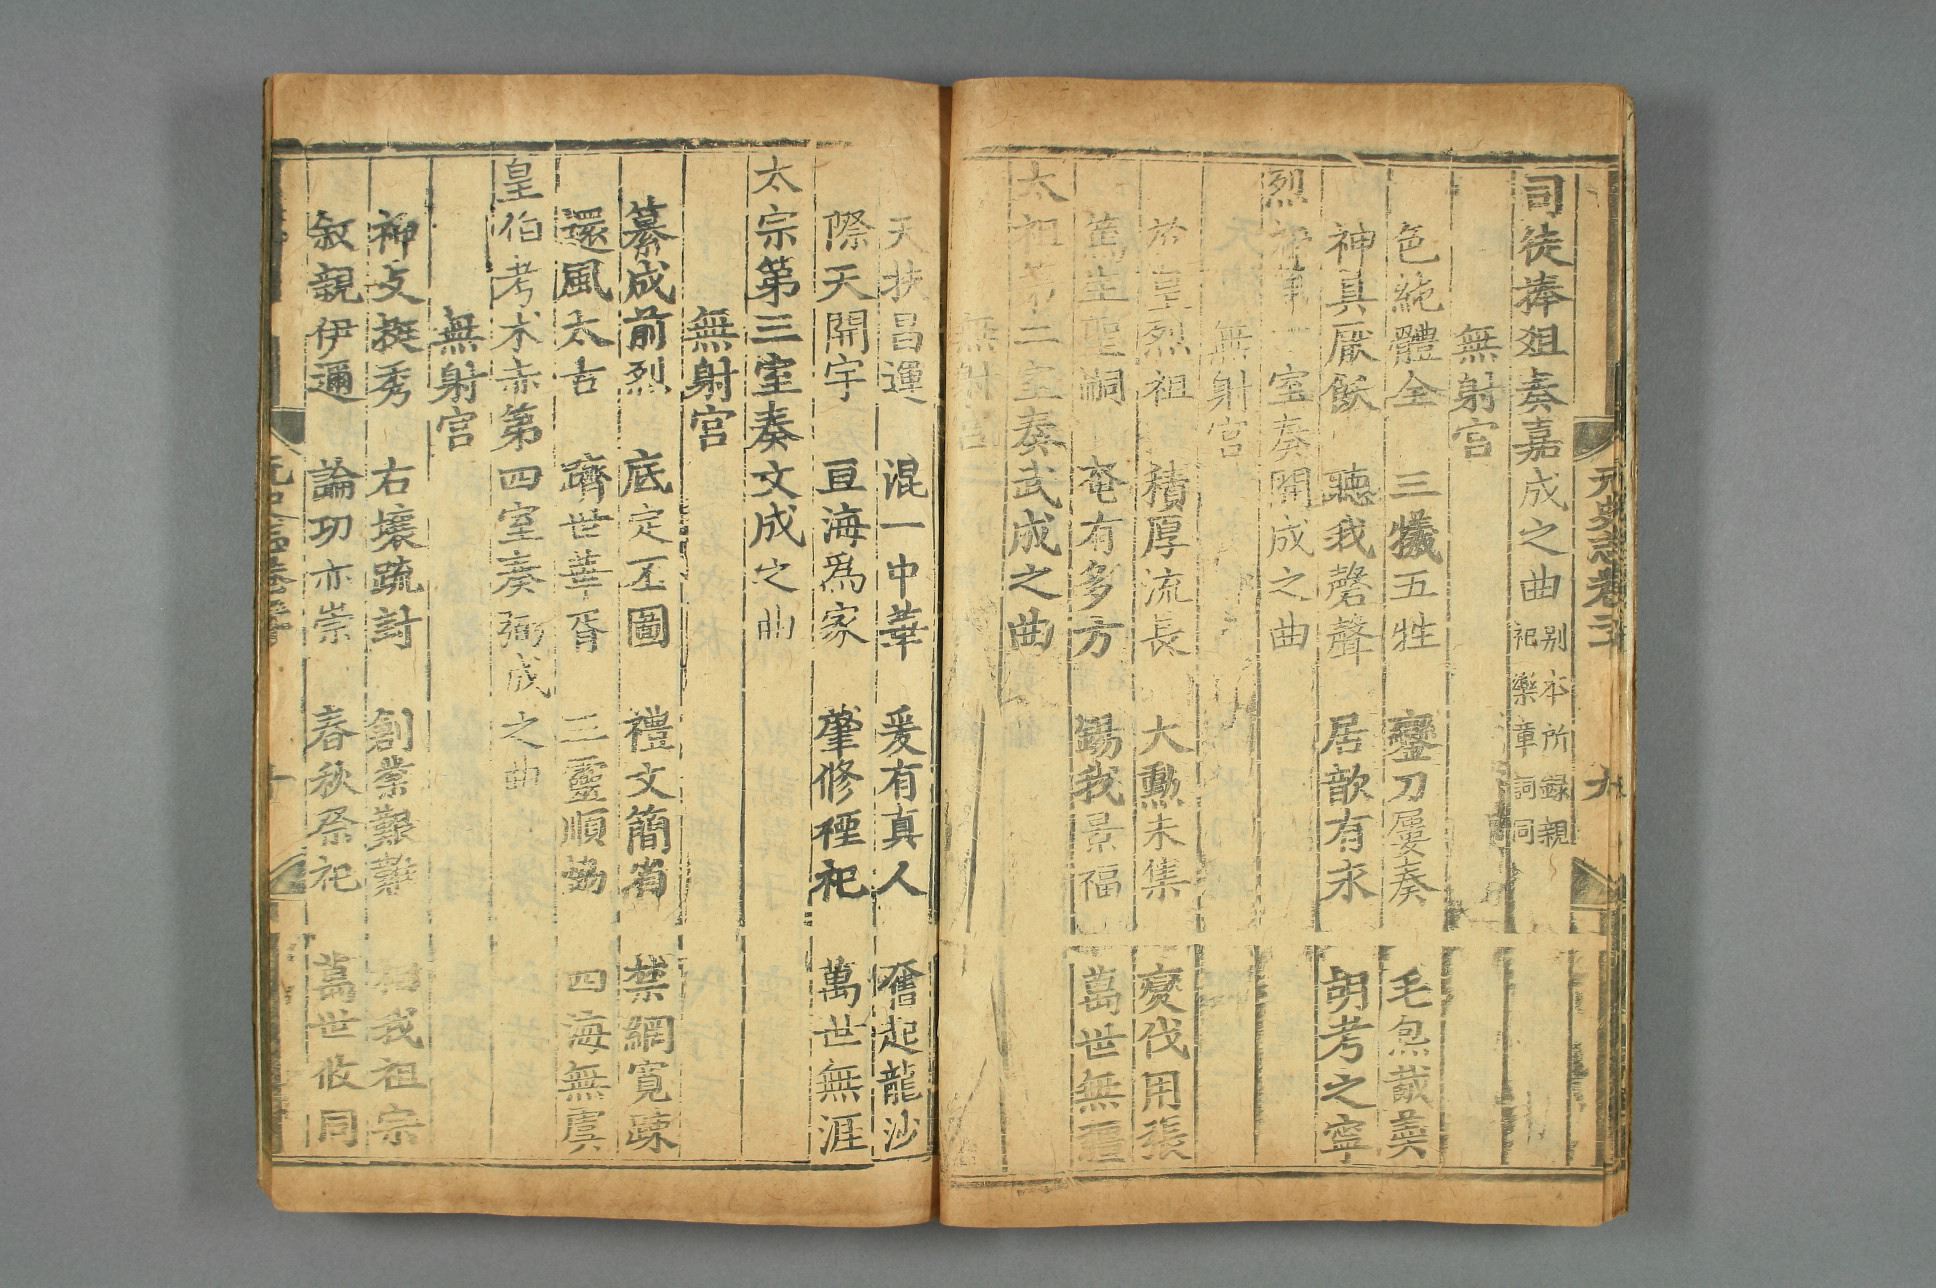 元史志卷二 九
司徒捧俎奏嘉成之曲 别本所録親
祀樂章詞同
無射宮
色純體全 三犧五牲 鸞刀屢奏 毛炰胾羹
神具厭飫 聽我磬聲 居歆有永 胡考之寧
烈祖第一室奏開成之曲
無射宮
於皇烈祖 積厚流長 大勳未集 燮伐用張
篤生聖嗣 奄有多方 錫我景福 萬世無疆
太祖第二室奏武成之曲
無射宮
天扶昌運 混一中華 爰有真人 奮起龍沙
際天開宇 亘海爲家 肇修禋祀 萬世無涯
太宗第三室奏文成之曲
無射宮
纂成前烈 底定丕圖 禮文簡省 禁網寬疎
還風太古 躋世華胥 三靈順協 四海無虞
皇伯考朮赤第四室奏弼成之曲
無射宮
神支挺秀 右壤疏封 創業艱難 相我祖宗
叙親伊邇 論功亦崇 春秋祭祀 萬世攸同